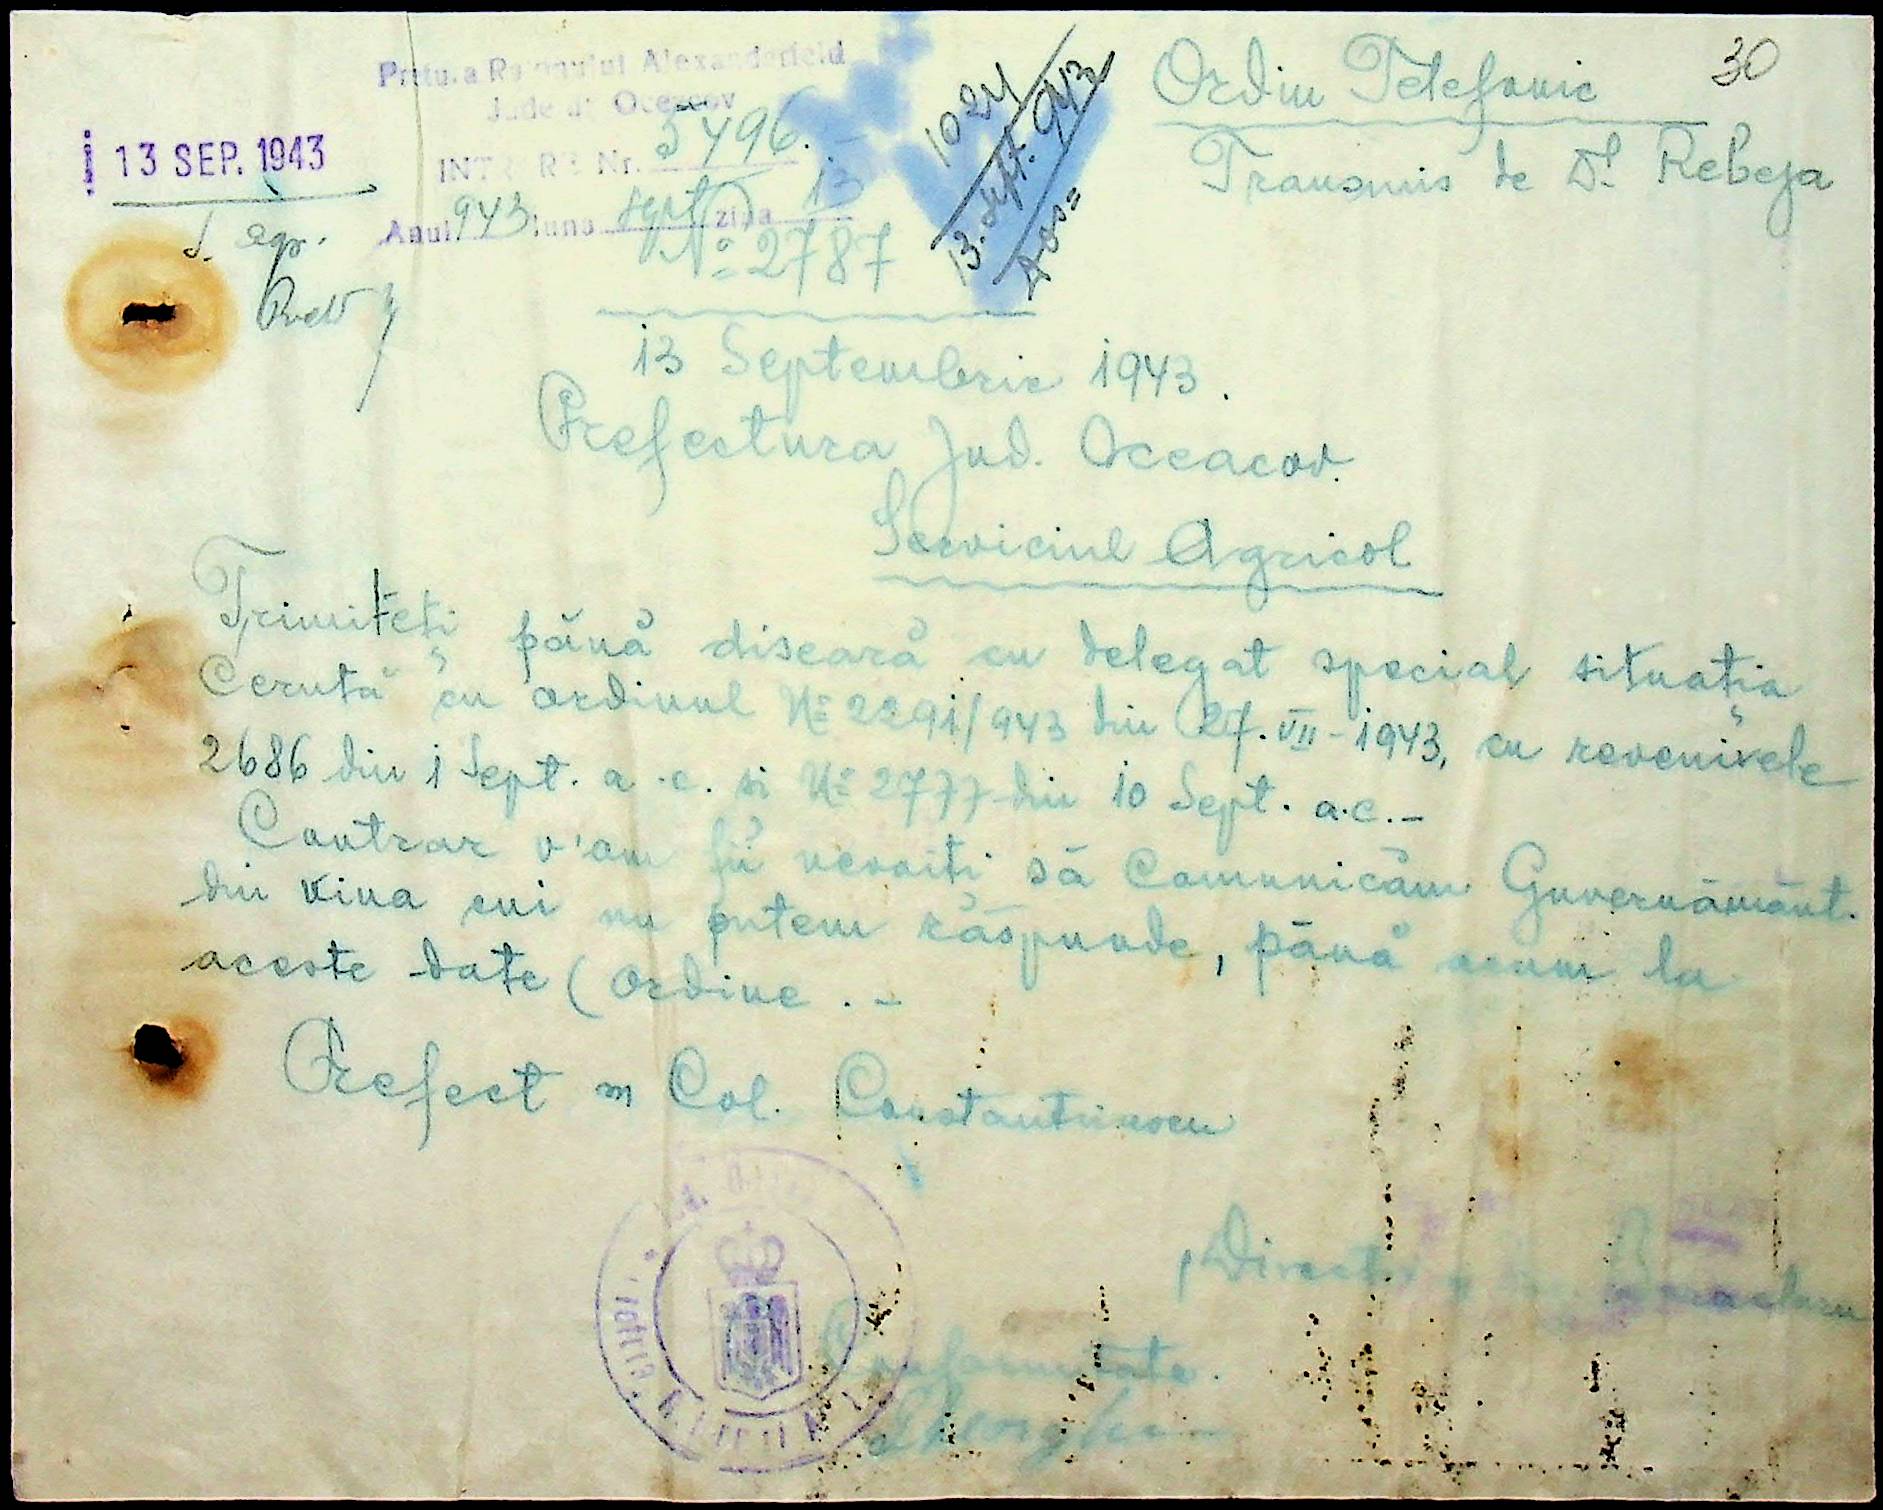 30
Ordin Telefonic
Transmis de Dl. Rebeja
Pretura Raionului Alexanderfeld
Județul Oceacov
INTRARE Nr. 5496.
Anul 943 luna Sept ziua 13
13 SEP. 1943
S. agr.
1024
13. Sept. 943
No 2787
13 Septembrie 1943.
Prefectura Jud. Oceacov.
Serviciul Agricol
Trimiteți până diseară cu delegat special situația
Cerută cu ordinul No 2291/943 din 27.VII-1943, cu revenirele
2686 din 1 Sept. a.c. si No 2777 din 10 Sept. a.c. -
Contrar v'am fii nevoiti să Comunicăm Guvernământ.
din vina cui nu putem răspunde, până acum la
aceste date (ordine. -
Prefect Col. Constantinescu
Conformitate.